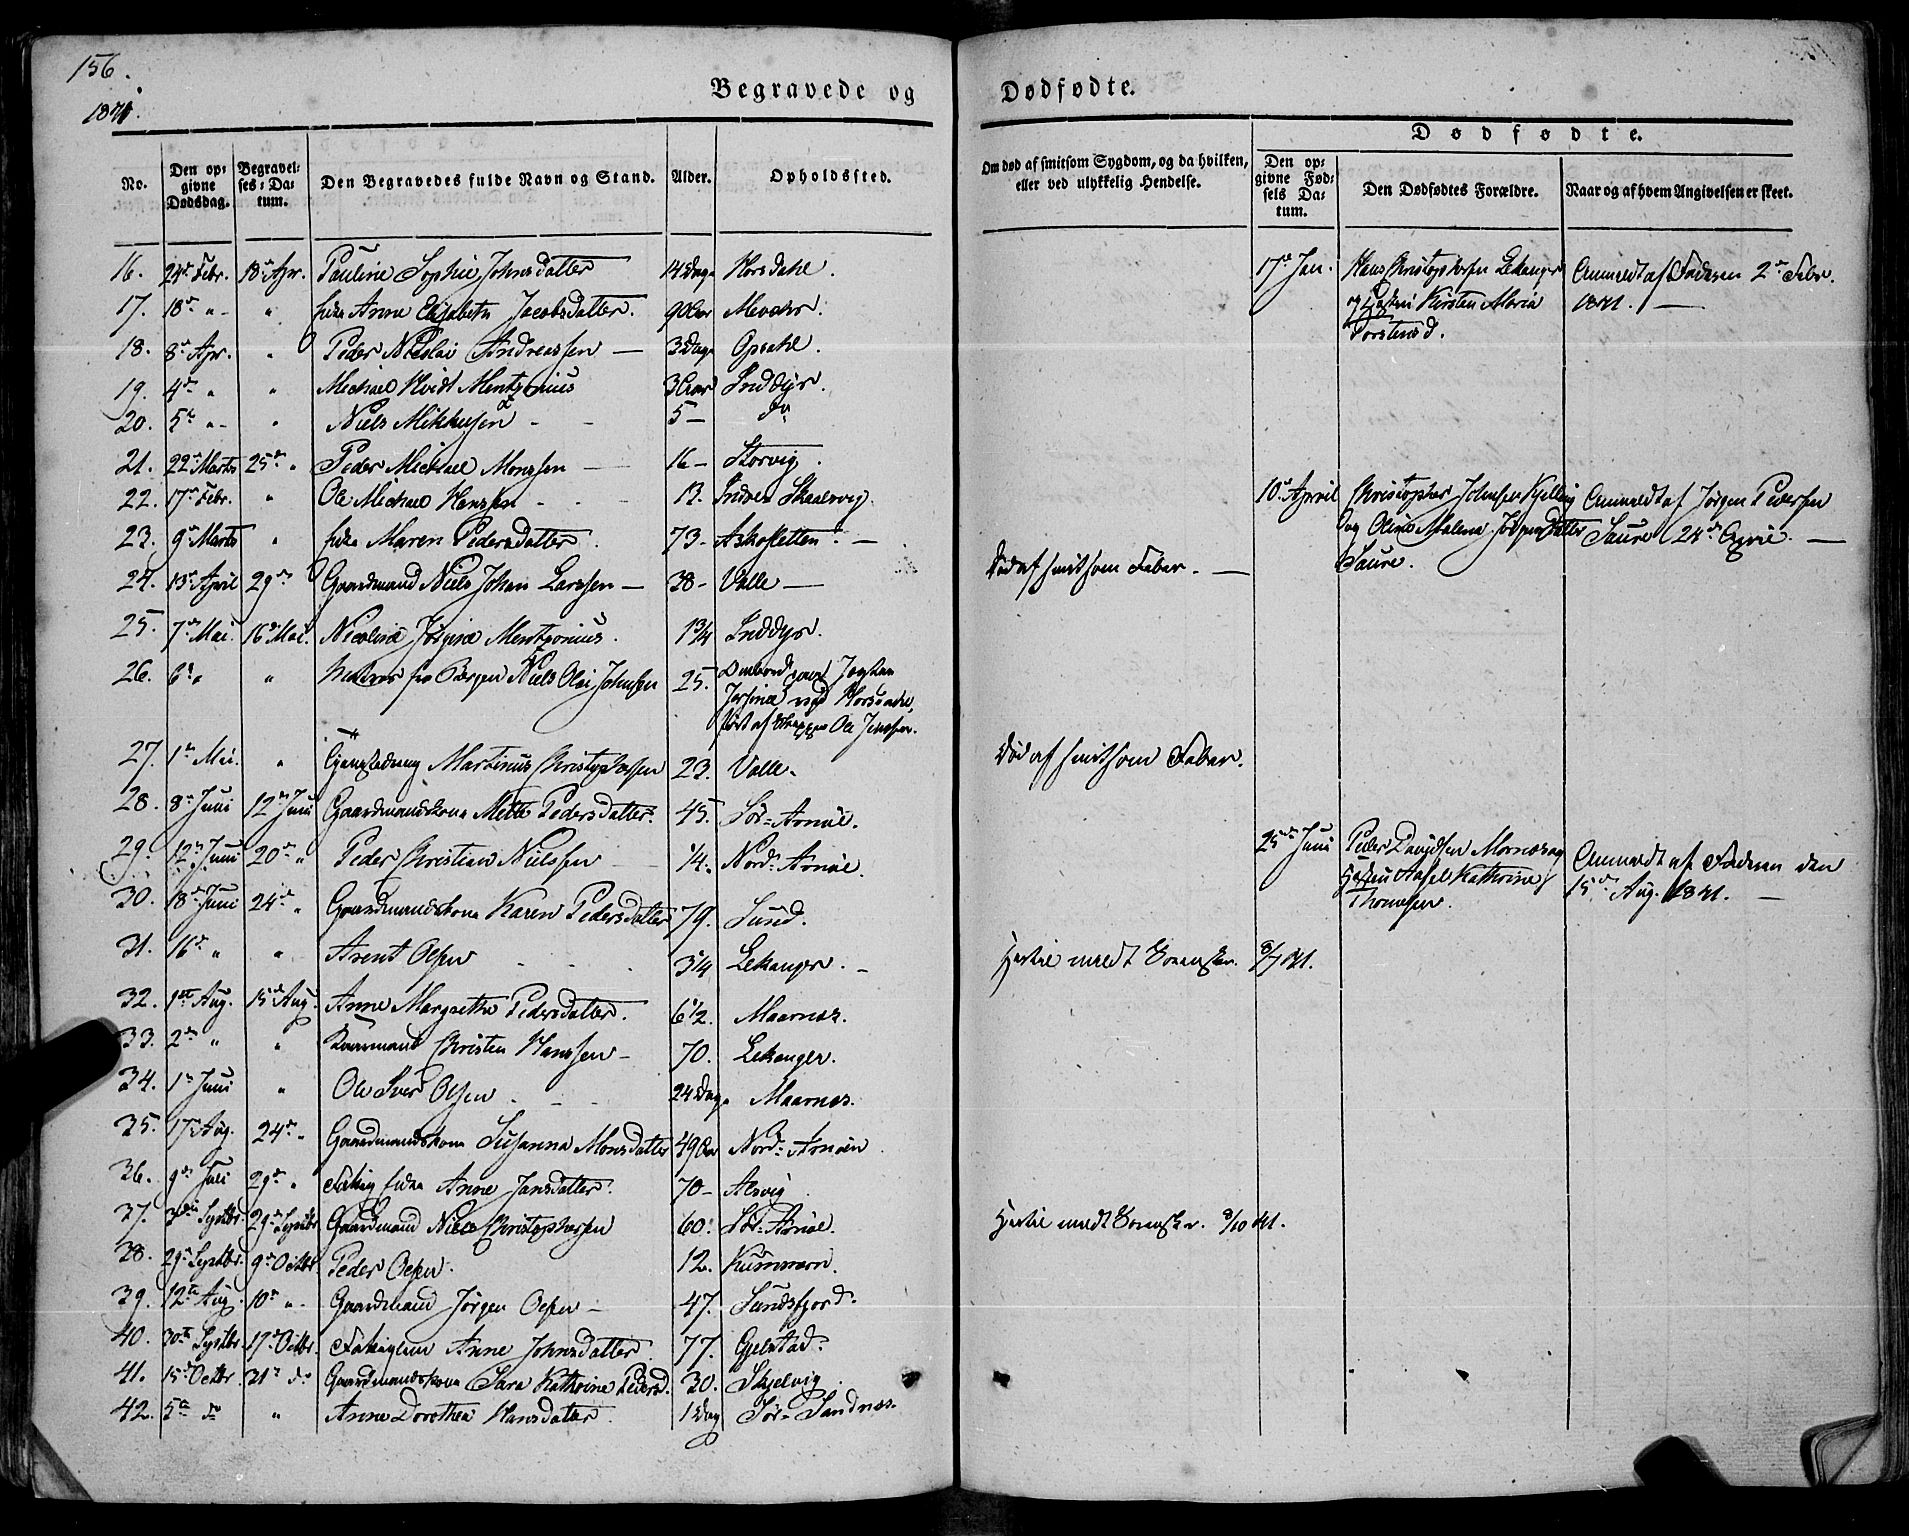 156.
1841.
Begravede og
Dødfødte.
No.
Den op-
givne
Dødsdag.
Begravel-
ses-Da-
tum.
Den Begravedes fulde Navn og Stand.
Alder.
Opholdssted.
16. 24de Febr. 18de Apr. Pauline Sophie Johnsdatter 14 Dage Horsdahl.
17. 18de " " Anne Elisabeth Jacobsdatter. 90 Aar Mevær.
18. 8de Apr. " Peder Nicolai Andreassen — 3 Dage Opsahl.
19. 4de " " Michael Hvidt Mentzonius 3 Aar Inddyr.
20. 5te " " Niels Mikkelsen 5 — do
21. 22de Marts 25de " Peder Michael Monssen 16 — Storvig.
22. 17de Febr. " Ole Michael Hanssen 13. Indre Skaalvig.
23. 9de Marts " Maren Pedersdatter. 73 — Askosletten. —
24. 13de April 29de Gaardmand Niels Johan Larssen — 38 — Valle —
25. 7de Mai. 16de Mai. Nicoline Jørgine Mentzonius. 1 3/4 Inddyr.
26. 6te " " fra Bergen Niels Olai Johnsen 25. Ombord paa Jagten
ved Horsdahl,
ført af Skipper Ole Jenssen.
27. 1ste Mai. " Martinus Christophersen 23. Valle.
28. 8de Juni 12te Juni Gaardmandskone Mette Pedersdatter. 45. Sør-Arnøe.
29. 12te Juni 20de " Peder Christian Nielssen 1/4. Nord-Arnøe.
30. 18de Juni 24de " Gaardmandskone Karen Pedersdatter 79. Sund.
31. 16de " " Arent Olsen 3 1/4 Lekanger. —
32. 1ste Aug. 15de Aug. Anne Margrethe Pedersdatter. 6 1/2. Maarnæs.
33. 2den " " Christen Hanssen — 70. Lekanger.
34. 1ste Juni " Ole Iver Olsen 24 Dage Maarnæs.
35. 17de Aug. 24de " Gaardmandskone Susanna Monsdatter 49 Aar Nord-Arnøen
36. 9de Juli 29de " Anne Jansdatter. 70 — Alsvig
37. 3die Septbr. 29de Septbr. Gaardmand Niels Christophersen 60. Sør-Arnøe.
38. 29de Septbr. 9de Octbr. Peder Olsen. 12. Kunnarn.
39. 12te Aug. 10de " Gaardmand Jørgen Olsen — 47. Sundsfjord.
40. 30te Septbr. 17de Octbr. Anne Johnsdatter. 77. Gjelstad.
41. 15de Octbr. 31te do Gaardmandskone Sara Kathrine Pedersd. 30. Skjelvig.
42. 5te do " Anne Dorothea Hansdatter. 1 Dag Sør-Sandnæs.
Om død af smitsom Sygdom, og da hvilken,
eller ved ulykkelig Hendelse.
Død af smitsom Feber. —
Død af smitsom Feber.
Hertil meldt 8/7 41.
Hertil meldt 8/10 41.
Dødfødte.
Den op-
givne Fød-
sels Da-
tum.
Den Dødfødtes Forældre.
Naar og af hvem Angivelsen er skeet.
17de Jan. Hans Christophersen Lekanger Anmeldt af Faderen 2den Febr.
og Kirsten Maria 1841. —
Torstensd.
10de April Christopher Johnsen Kjelling Anmeldt af Jørgen Pedersen
og Oline Malena Jørgensdatter Saure 24de April. —
Saure.
25de Juni Peder Davidsen Mornæs og Anmeldt af Faderen den
Kathrine 15de Aug. 1841. —
Thomesen.